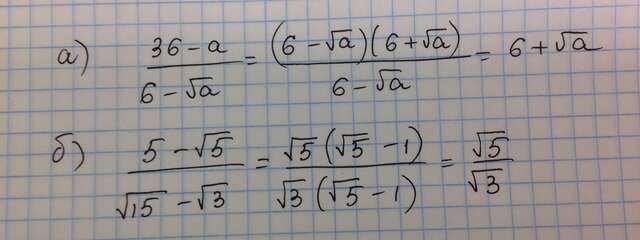 а) (36 − a)/(6 − √a) = ((6 − √a)(6 + √a))/(6 − √a) = 6 + √a
б) (5 − √5)/(√15 − √3) = (√5(√5 − 1))/(√3(√5 − 1)) = √5/√3